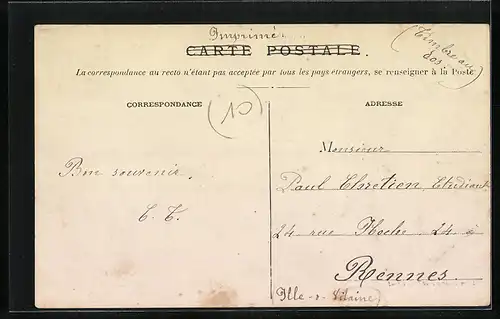 Imprimé
CARTE POSTALE.
(Timbre au
dos.)
La correspondance au recto n'étant pas acceptée par tous les pays étrangers, se renseigner à la Poste
CORRESPONDANCE
(10)
ADRESSE
Monsieur
Bon souvenir.
Paul Chrétien, Etudiant
24 rue Hoche 24 à
Rennes.
Ille-&-Vilaine)